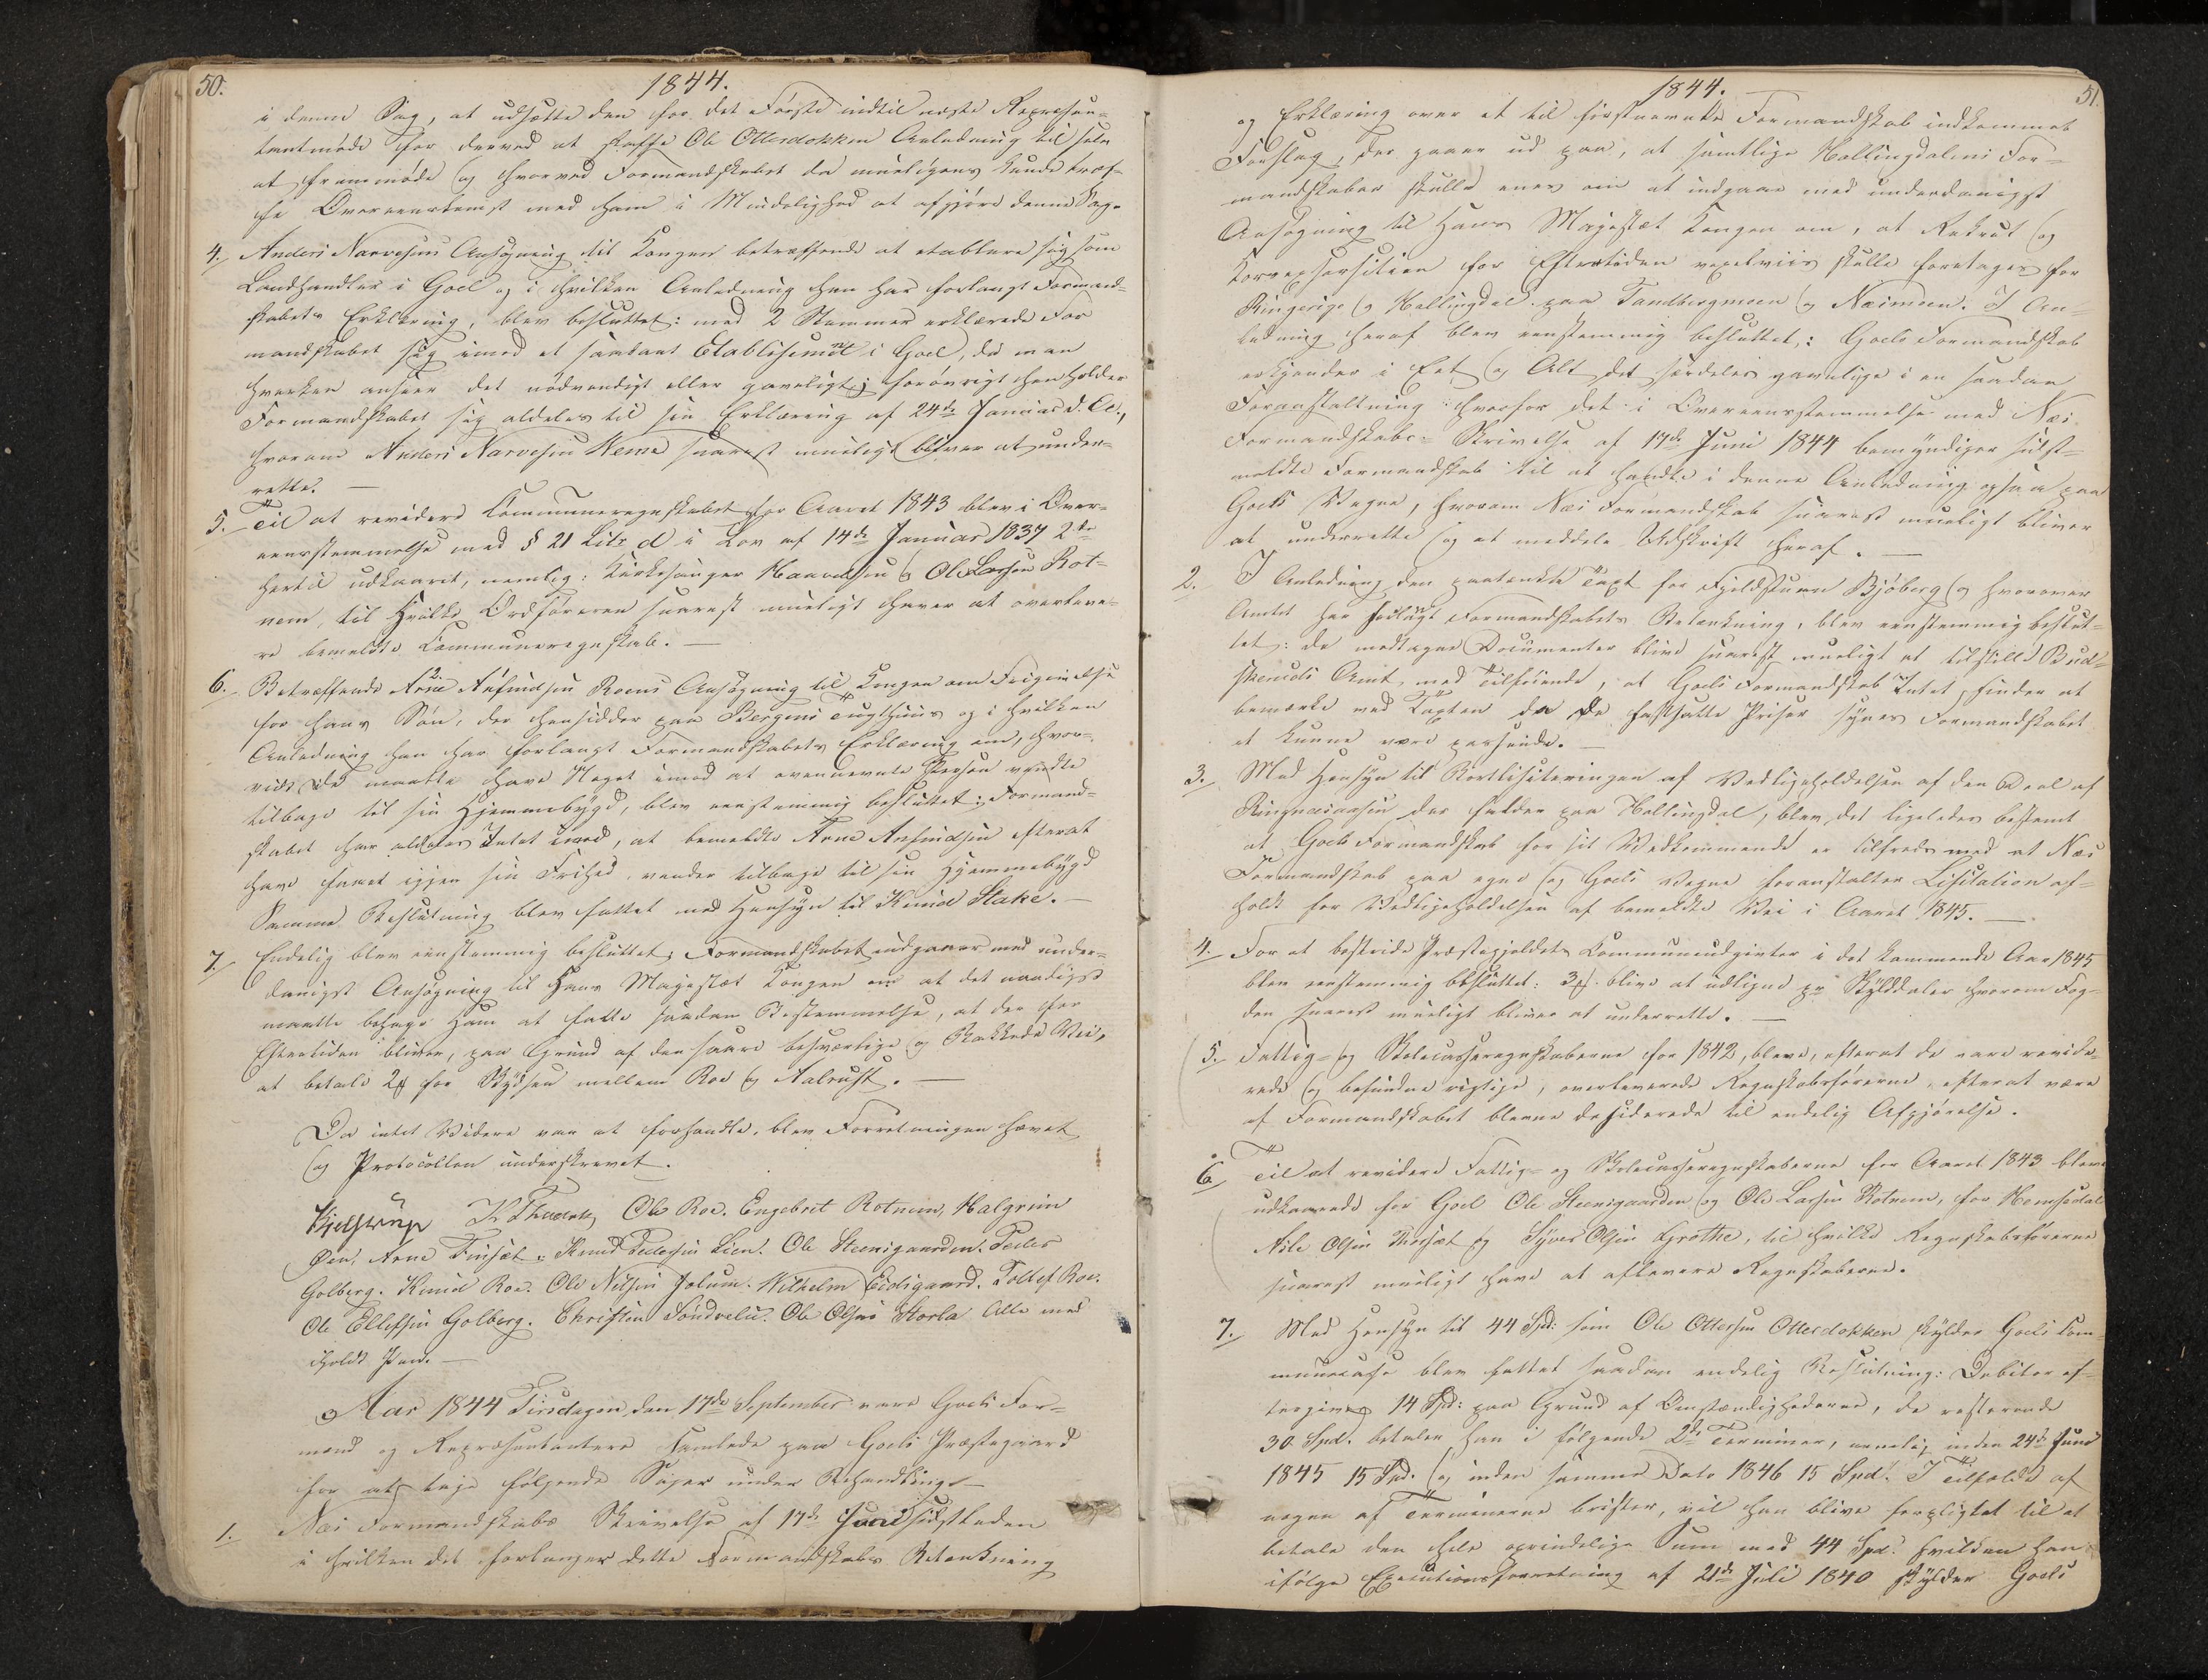 50.
1844.
i denne Sag, at udsætte den for det Første indtil næste Repræsen-
tantmøde for derved at skaffe Ole Ottersdokken Anledning til selv
at fremmøde og hvorved Formandskabet da mueligens kunde træf-
fe Overeenskomst med ham i Mindelighed at afgjøre denne Sag.
4. Anders Narvesens Ansøgning til Kongen betræffende at etablere sig som
Landhandler i Goel og i hvilken Anledning han har forlangt Formand-
skabets Erklæring, blev besluttet: med 2 Stemmer erklærede For
mandskabet sig imod et saadant Etablisement i Goel, da man
hverken anseer det nødvendigt eller gavnligt; forøvrigt henholder
Formandskabet sig aldeles til sin Erklæring af 24de Januar d. A.,
hvorom Anders Narvesen Heme snarest mueligt bliver at under-
rette. —
5. Til at revidere Communeregnskabet for Aaret 1843 blev i Over-
eensstemmelse med § 21 Litr d i Lov af 14de Januar 1837 2de
hertil udkaaret, nemlig: Kirkesanger Haavelsen og Ole Larsen Rot-
nem, til hvilke Ordføreren snarest mueligt haver at overleve-
re bemeldte Communeregnskab. —
6. Betræffende Arne Anfindsen Roens Ansøgning til Kongen om Frigivelse
for hans Søn, der hensidder paa Bergens Tugthuus og i hvilken
Anledning han har forlangt Formandskabets Erklæring om, hvor-
vidt De maatte have Noget imod at ovennævnte Person vendte
tilbage til sin Hjemmebygd, blev eenstemmig besluttet: Formand-
skabet har aldeles Intet imod, at bemeldte Arne Anfindsen efterat
have faaet igjen sin Frihed, vender tilbage til sin Hjemmebygd
Samme Beslutning blev fattet med Hensyn til Knud Stake. —
7. Endelig blev eenstemmig besluttet, Formandskabet indgaaer med under-
danigst Ansøgning til Hans Majestæt Kongen om at det naadigst
maatte behage Ham at fatte saadan Bestemmelse, at der for
Eftertiden bliver, paa Grund af den saare besværlige og Bakkede Vei,
at betale 2ß for Skydsen mellem Roe og Aalrust. —
Da intet Videre var at forhandle, blev Forretningen hævet
og Protocollen underskrevet.
Kjelstrup K Thurmer Ole Roe. Engebret Rotnem, Halgrim
Øen, Arne Finsæt. Knud Pedersen Lien. Ole Steensgaarden. Peder
Golberg. Knud Roe. Ole Nilsen Jolum. Wilhelm Eidsgaard. Tollef Roe.
Ole Ellefsen Golberg. Christen Søndrelie. Ole Olsen Storla Alle med
iholdt Pen. —
Aar 1844 Tirsdagen den 17de September vare Goels For-
mænd og Repræsentantere samlede paa Goels Præstegaard
for at tage følgende Sager under Behandling. —
1. Næs Formandskabs Skrivelse af 17de Juni sidstleden
i hvilken det forlanger dette Formandskabs Betænkning
1844.
51.
og Erklæring over et til førstnævnte Formandskab indkommet
Forslag, der gaaer ud paa, at samtlige Hallingdalens For-
mandskaber skulle enes om at indgaae med underdanigst
Ansøgning til Hans Majestæt Kongen om, at Rekrut og
Korpsexersitien for Eftertiden vexelviis skulle foretages for
Ringerige og Hallingdal paa Tandbergmoen og Næsmoen. I An-
ledning heraf blev eenstemmig besluttet: Goels Formandskab
erkjender i Eet og Alt det særdeles gavnlige i en saadan
Foranstaltning hvorfor det i Overeensstemmelse med Næs
Formandskabs Skrivelse af 17de Juni 1844 bemyndiger sidst-
meldte Formandskab til at handle i denne Anledning ogsaa paa
Goels Vegne, hvorom Næs Formandskab snarest mueligt bliver
at underrette og at meddele Udskrift heraf. —
2. I Anledning den paatænkte Taxt for Fjeldstuen Bjøberg og hvorover
Amtet har forlangt Formandskabets Betænkning, blev eenstemmig beslut-
tet: de modtagne Documenter blive snarest mueligt at tilstille Bud-
skeruds Amt med Tilføiende, at Goels Formandskab Intet finder at
bemærke ved Taxten da De fastsatte Priser synes Formandskabet
at kunne være passende. —
3. Med Hensyn til Bortlisiteringen af Vedligeholdelsen af den Deel af
Ringnæsaasen der falder paa Hallingdal, blev det ligeledes bestemt
at Goels Formandskab for sit Vedkommende er tilfreds med at Næs
Formandskab paa egne og Goels Vegne foranstalter Lisitation af-
holdt for Vedligeholdelsen af bemeldte Vei i Aaret 1845. —
4. For at bestride Præstegjeldets Communeudgivter i det kommende Aar 1845
blev eenstemmig besluttet: 3ß blive at udligne pr Skylddaler hvorom Fog-
den snarest mueligt bliver at underrette. —
5. Fattig- og Skolecasseregnskaberne for 1842, bleve, efterat de vare revide-
rede og befundne rigtige, overleverede Regnskabsførerne, efterat være
af Formandskabet blevne desiderede til endelig Afgjørelse.
6. Til at revidere Fattig- og Skolecasseregnskaberne for Aaret 1843 bleve
udkaarede for Goel Ole Steensgaarden og Ole Larsen Rotnem, for Hemsedal
Nils Olsen Thorsæt og Syver Olsen Grøthe, til hvilke Regnskabsførerne
snarest mueligt have at aflevere Regnskaberne.
7. Med Hensyn til 44 Spd: som Ole Ottersen Ottersdokken skylder Goels Com-
munecasse blev fattet saadan endelig Beslutning: Debitor ef-
tergives 14 Spd: paa Grund af Omstændighederne, de resterende
30 Spd. betaler han i følgende 2de Terminer, nemlig inden 24de Juni
1845 15 Spd. og inden samme Dato 1846 15 Spd. I Tilfælde af
nogen af Terminerne brister, vil han blive forpligtet til at
betale den hele oprindelige Sum med 44 Spd. hvilken han
ifølge Executionsforretning af 21de Juli 1840 skylder Goels